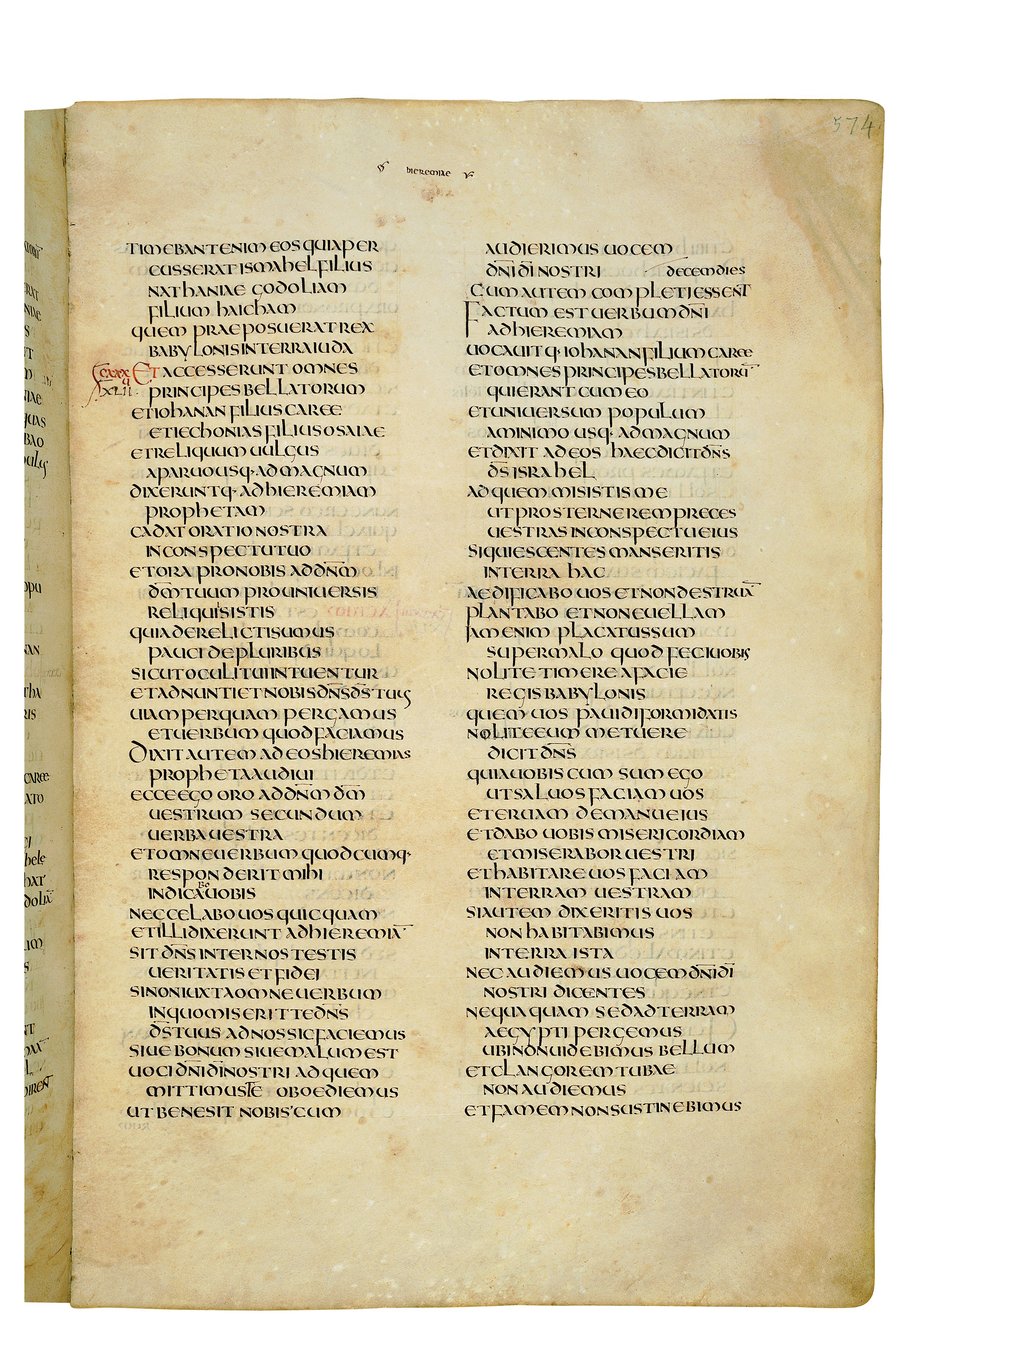 574
hieremiae
timebant enim eos quia per
cusserat ismahel filius
nathaniae godoliam
filium haicham
quem praeposuerat rex
babylonis in terra iuda
cxxx
xlii
Et accesserunt omnes
principes bellatorum
et iohanan filius caree
et iechonias filius osaiae
et reliquum uulgus
a paruo usq· ad magnum
dixeruntq· ad hieremiam
prophetam
cadat oratio nostra
in conspectu tuo
et ora pro nobis ad dn̄m
dm̄ tuum pro uniuersis
reliquisistis
quia derelicti sumus
pauci de pluribus
sicut oculi tui intuentur
et adnuntiet nobis dn̄s ds̄ tuus
uiam per quam pergamus
et uerbum quod faciamus
Dixit autem ad eos hieremias
propheta audiui
ecce ego oro ad dn̄m dm̄
uestrum secundum
uerba uestra
et omne uerbum quodcumq·
responderit mihi
indicabo uobis
nec celabo uos quicquam
et illi dixerunt ad hieremiā
sit dn̄s inter nos testis
ueritatis et fidei
si non iuxta omne uerbum
in quo miserit te dn̄s
ds̄ tuus ad nos sic faciemus
siue bonum siue malum est
uoci dn̄i dī nostri ad quem
mittimus te oboediemus
ut bene sit nobis cum
audierimus uocem
dn̄i dī nostri
Cum autem completi essent decem dies
Factum est uerbum dn̄i
ad hieremiam
uocauitq· iohanan filium caree
et omnes principes bellatorū
qui erant cum eo
et uniuersum populum
a minimo usq· ad magnum
et dixit ad eos haec dicit dn̄s
ds̄ israhel
ad quem misistis me
ut prosternerem preces
uestras in conspectu eius
si quiescentes manseritis
in terra hac
aedificabo uos et non destruā
plantabo et non euellam
iam enim placatus sum
super malo quod feci uobis
nolite timere a facie
regis babylonis
quem uos pauidi formidatis
nolite eum metuere
dicit dn̄s
quia uobiscum sum ego
ut saluos faciam uos
et eruam de manu eius
et dabo uobis misericordiam
et miserabor uestri
et habitare uos faciam
in terram uestram
si autem dixeritis uos
non habitabimus
in terra ista
nec audiemus uocem dn̄i dī
nostri dicentes
nequaquam sed ad terram
aegypti pergemus
ubi non uidebimus bellum
et clangorem tubae
non audiemus
et famem non sustinebimus